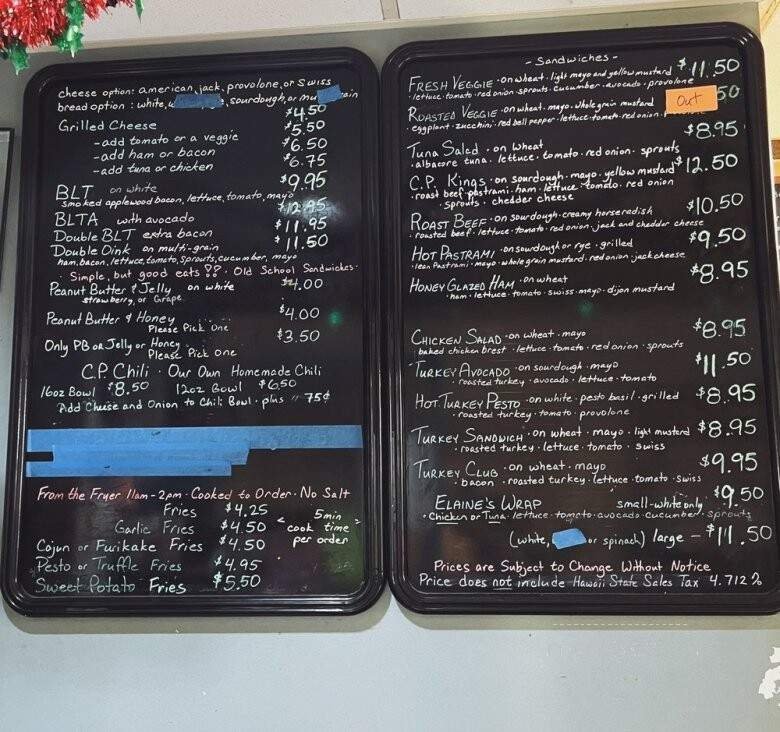 cheese option: american, jack, provolone, or Swiss
bread option : white, sourdough, or
Grilled Cheese $4.50
-add tomato or a veggie $5.50
-add ham or bacon $6.50
-add tuna or chicken $6.75
BLT on white $9.95
smoked applewood bacon, lettuce, tomato, mayo
BLTA with avocado $12.95
Double BLT extra bacon $11.95
Double Oink on multi-grain $11.50
ham, bacon, lettuce, tomato, sprouts, cucumber, mayo
Simple, but good eats ?? · Old School Sandwiches ·
Peanut Butter & Jelly on white $4.00
strawberry, or Grape
Peanut Butter & Honey $4.00
Please Pick One
Only PB or Jelly or Honey $3.50
Please Pick One
C.P. Chili · Our Own Homemade Chili
16oz Bowl $8.50 12oz Bowl $6.50
Add Cheese and Onion to Chili Bowl · plus 75¢
From the Fryer 11am-2pm · Cooked to Order · No Salt
Fries $4.25
Garlic Fries $4.50
Cajun or Furikake Fries $4.50
Pesto or Truffle Fries $4.95
Sweet Potato Fries $5.50
5min
cook time
per order
- Sandwiches -
FRESH VEGGIE · on wheat · light mayo and yellow mustard $11.50
· lettuce · tomato · red onion · sprouts · cucumber · avocado · provolone
ROASTED VEGGIE · on wheat · mayo · whole grain mustard Out 50
· eggplant · zucchini · red bell pepper · lettuce · tomato · red onion ·
Tuna Salad · on wheat $8.95
· albacore tuna · lettuce · tomato · red onion · sprouts
C.P. Kings · on sourdough · mayo · yellow mustard $12.50
· roast beef · pastrami · ham · lettuce · tomato · red onion
· sprouts · chedder cheese
ROAST BEEF · on sourdough · creamy horseradish $10.50
· roasted beef · lettuce · tomato · red onion · jack and chedder cheese
HOT PASTRAMI · on sourdough or rye · grilled $9.50
· lean Pastrami · mayo · whole grain mustard · red onion · jack cheese
HONEY GLAZED HAM · on wheat $8.95
· ham · lettuce · tomato · swiss · mayo · dijon mustard
CHICKEN SALAD · on wheat · mayo $8.95
· baked chicken brest · lettuce · tomato · red onion · sprouts
TURKEY AVOCADO · on sourdough · mayo $11.50
· roasted turkey · avocado · lettuce · tomato
HOT TURKEY PESTO · on white · pesto basil · grilled $8.95
· roasted turkey · tomato · provolone
TURKEY SANDWICH · on wheat · mayo · light mustard $8.95
· roasted turkey · lettuce · tomato · swiss
TURKEY CLUB · on wheat · mayo $9.95
· bacon · roasted turkey · lettuce · tomato · swiss
ELAINE'S WRAP small-white only $9.50
· Chicken or Tuna · lettuce · tomato · avocado · cucumber · sprouts
(white, or spinach) large - $11.50
Prices are Subject to Change Without Notice
Price does not include Hawaii State Sales Tax 4.712%